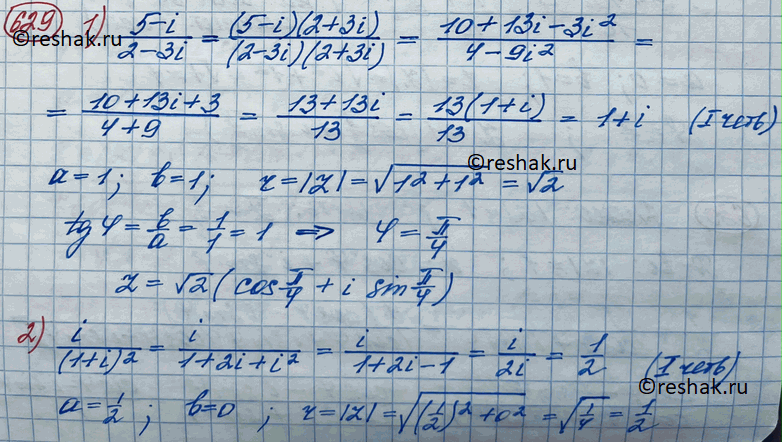 629 1) (5-i)/(2-3i) = ((5-i)(2+3i))/((2-3i)(2+3i)) = (10+13i-3i²)/(4-9i²) =
©reshak.ru
= (10+13i+3)/(4+9) = (13+13i)/13 = (13(1+i))/13 = 1+i (I четв)
©reshak.ru
a=1; b=1; r=|z|=√(1²+1²) = √2
tg φ = b/a = 1/1 = 1 ⇒ φ = π/4
z = √2 (cos π/4 + i sin π/4)
2) i/(1+i)² = i/(1+2i+i²) = i/(1+2i-1) = i/2i = 1/2 (I четв)
©reshak.ru
©reshak.ru
a=1/2; b=0; r=|z|=√((1/2)²+0²) = √(1/4) = 1/2